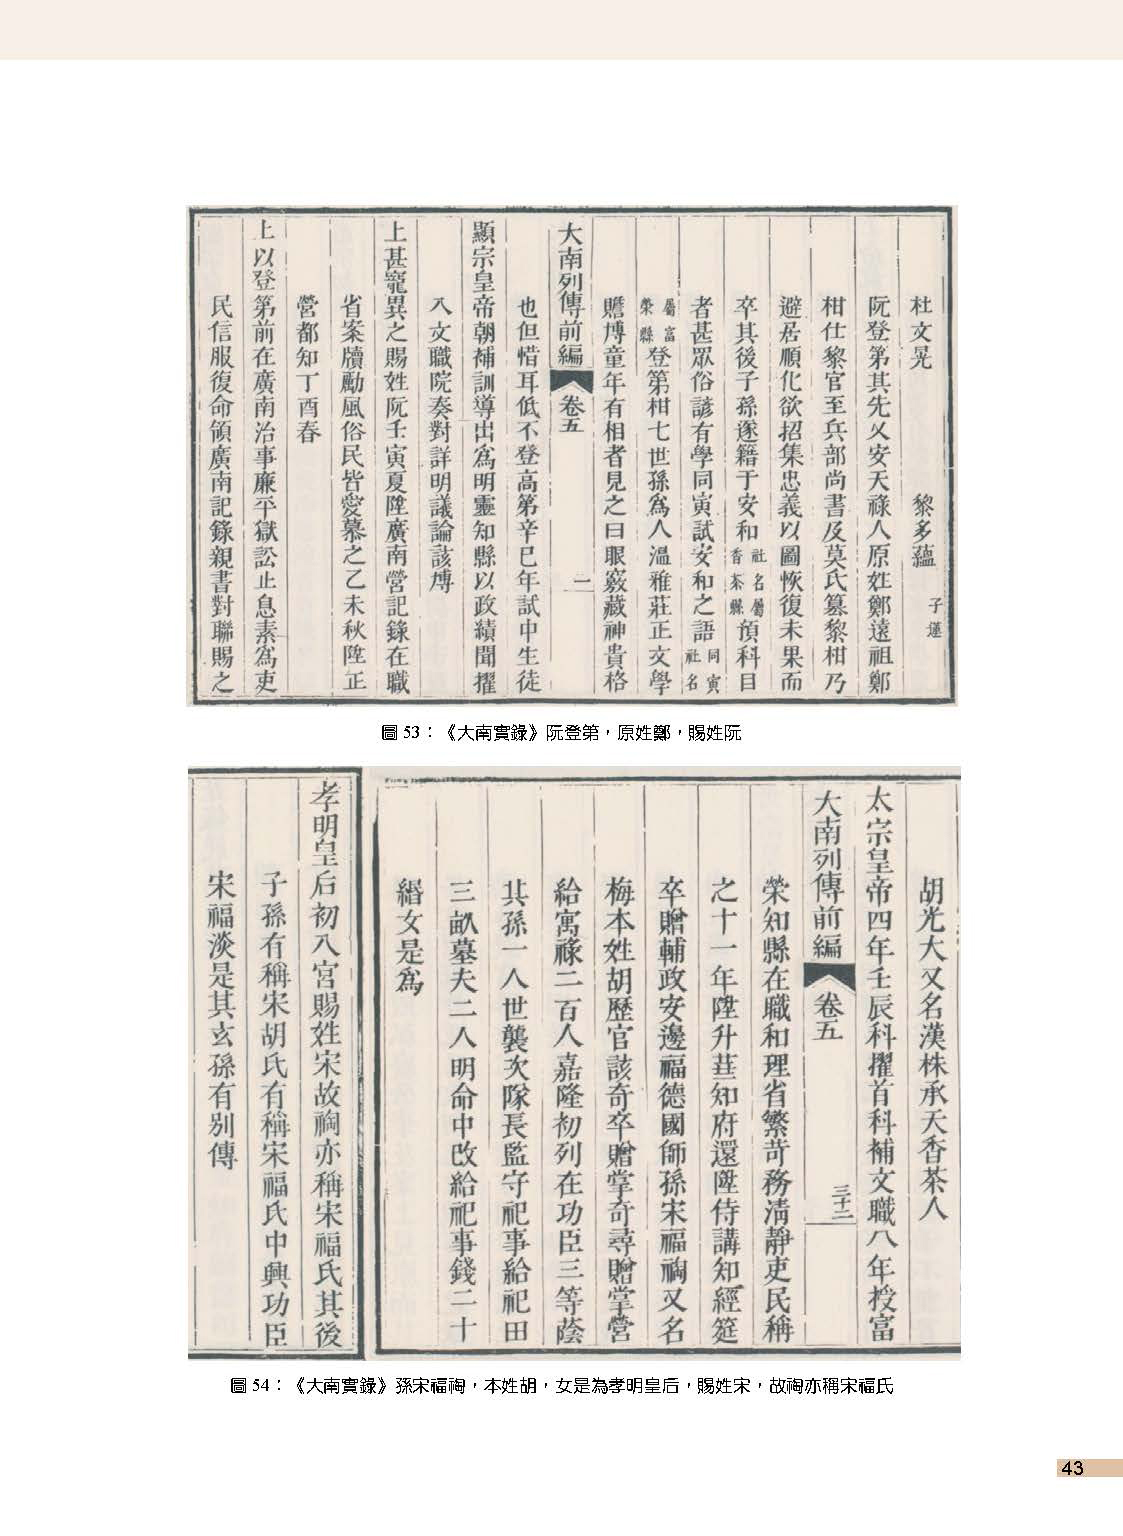 杜文晃　黎多蘊　子瑾
阮登第其先乂安天祿人原姓鄭遠祖鄭
柑仕黎官至兵部尚書及莫氏篡黎柑乃
避居順化欲招集忠義以圖恢復未果而
卒其後子孫遂籍于安和社名屬香茶縣預科目
者甚眾俗諺有學同寅試安和之語同寅社名
屬富榮縣登第柑七世孫為人溫雅莊正文學
贍博童年有相者見之曰眼竅藏神貴格
大南列傳前編　卷五　一
也但惜耳低不登高第辛巳年試中生徒
顯宗皇帝朝補訓導出為明靈知縣以政績聞擢
入文職院奏對詳明議論該博
上甚寵異之賜姓阮壬寅夏陞廣南營記錄在職
省案牘勵風俗民皆愛慕之乙未秋陞正
營都知丁酉春
上以登第前在廣南治事廉平獄訟止息素為吏
民信服復命領廣南記錄親書對聯賜之
圖 53：《大南實錄》阮登第，原姓鄭，賜姓阮
胡光大又名漢株承天香茶人
太宗皇帝四年壬辰科擢首科補文職八年授富
大南列傳前編　卷五　三十二
榮知縣在職和理省繁苛務清靜吏民稱
之十一年陞升華知府還陞侍講知經筵
卒贈輔政安邊福德國師孫宋福祹又名
梅本姓胡歷官該奇卒贈掌奇尋贈掌營
給寓祿二百人嘉隆初列在功臣三等蔭
其孫一人世襲次隊長監守祀事給祀田
三畝墓夫二人明命中改給祀事錢二十
緡女是為
孝明皇后初入宮賜姓宋故祹亦稱宋福氏其後
子孫有稱宋胡氏有稱宋福氏中興功臣
宋福淡是其玄孫有別傳
圖 54：《大南實錄》孫宋福祹，本姓胡，女是為孝明皇后，賜姓宋，故祹亦稱宋福氏
43